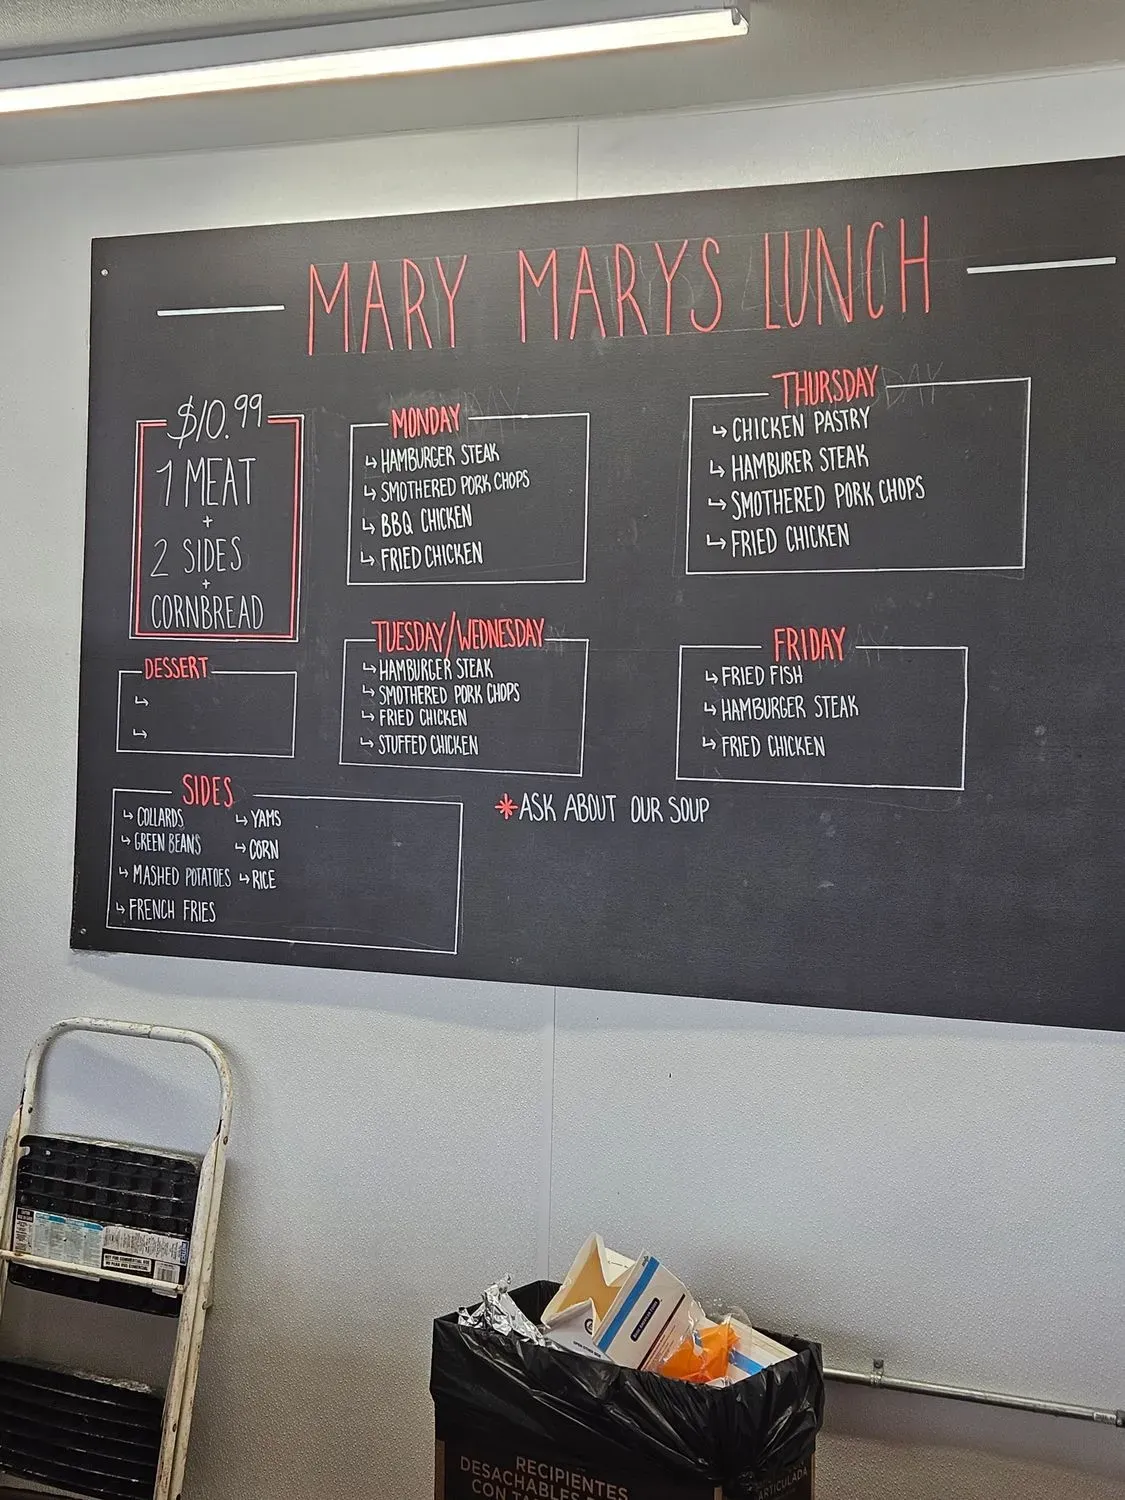 MARY MARYS LUNCH
$10.99
1 MEAT
+
2 SIDES
+
CORNBREAD
DESSERT
SIDES
COLLARDS
GREEN BEANS
MASHED POTATOES
FRENCH FRIES
YAMS
CORN
RICE
MONDAY
HAMBURGER STEAK
SMOTHERED PORK CHOPS
BBQ CHICKEN
FRIED CHICKEN
TUESDAY/WEDNESDAY
HAMBURGER STEAK
SMOTHERED PORK CHOPS
FRIED CHICKEN
STUFFED CHICKEN
THURSDAY
CHICKEN PASTRY
HAMBURER STEAK
SMOTHERED PORK CHOPS
FRIED CHICKEN
FRIDAY
FRIED FISH
HAMBURGER STEAK
FRIED CHICKEN
*ASK ABOUT OUR SOUP
RECIPIENTES
DESACHABLES
CON
ARTICULADA